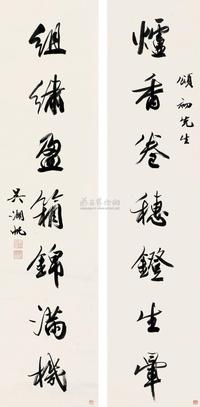 頌初先生
爐香卷穗鐙生暈
組繡盈箱錦滿機
吳湖帆